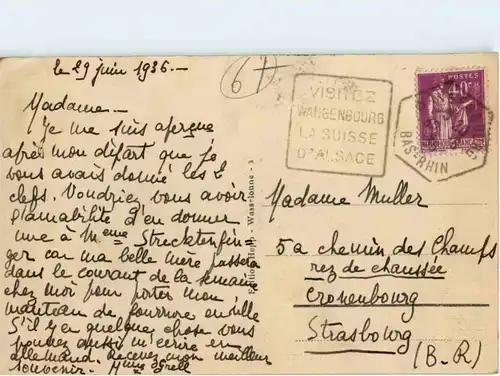 le 29 juin 1936.—
67
Madame —
Je me suis aperçue
après mon départ que je
vous avais donné les 2
clefs. Voudriez vous avoir
l'amabilité d'en donner
une à Mme Strecktenfin
ger car ma belle mère passera
dans le courant de la semaine
chez moi pour porter mon
manteau de fourrure en ville
S'il y a quelque chose vous
pouvez aussi m'écrire en
allemand. Recevez mon meilleur
souvenir. Mme Grell
VISITEZ
WANGENBOURG
LA SUISSE
D'ALSACE
POSTES
40c
BAS-RHIN
Madame Muller
5a chemin des Champs
rez de chaussée
Cronenbourg
Strasbourg
(B-R)